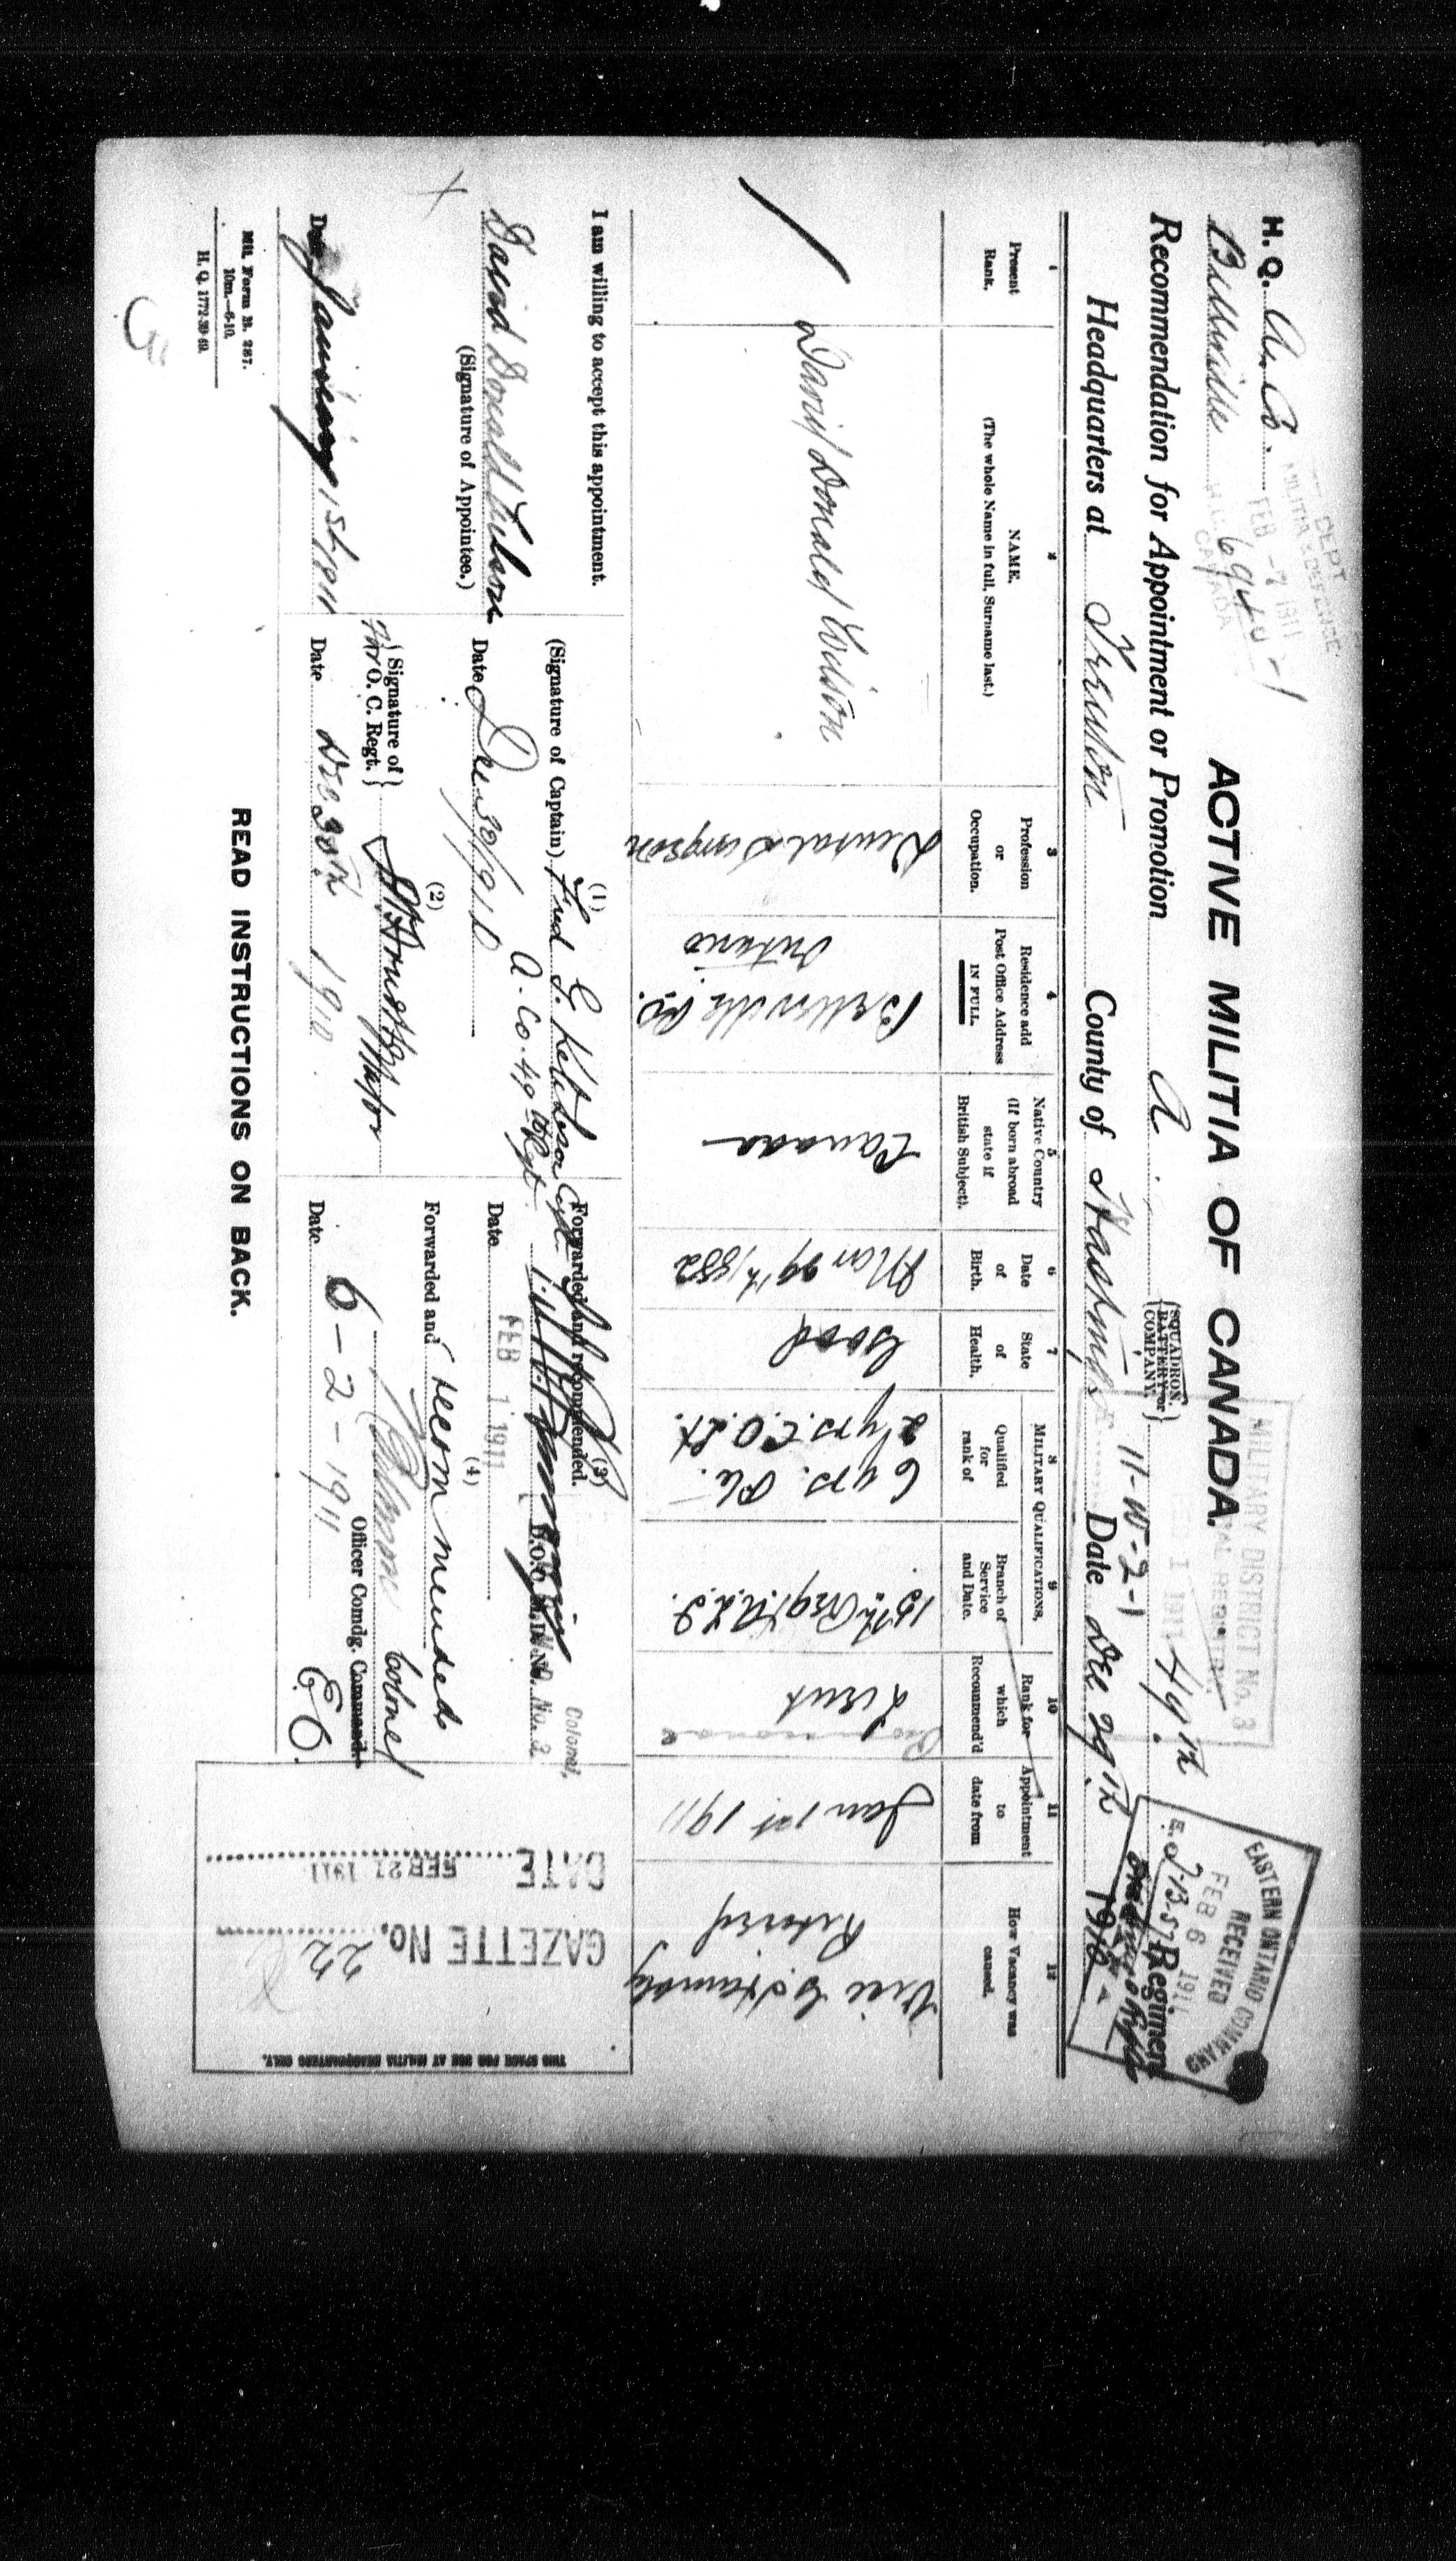 H. Q. A. Co.
Belleville
DEPT
MILITIA & DEFENCE
FEB -7 1911
H.Q. 6940-1
CANADA
ACTIVE MILITIA OF CANADA.
MILITARY DISTRICT No. 3
FEB 1 1911
EASTERN ONTARIO COMMAND
RECEIVED
FEB 6 1911
Recommendation for Appointment or Promotion A {SQUADRON, BATTERY or COMPANY.} 11-W-2-1 49th Regiment
Headquarters at Trenton County of Hastings Date Dec 29th 1910
1
Present Rank.
2
NAME.
(The whole Name in full, Surname last.)
3
Profession or Occupation.
4
Residence add Post Office Address IN FULL.
5
Native Country (If born abroad state if British Subject).
6
Date of Birth.
7
State of Health.
MILITARY QUALIFICATIONS.
8
Qualified for rank of
9
Branch of Service and Date.
10
Rank for which Recommend'd
11
Appointment to date from
12
How Vacancy was caused.
David Donald Wilson
Dental Surgeon
Belleville P.O.
Ontario
Canada
Mar 29th 1882
Good
6 yrs. Pte.
2 yrs. C.O. Lt.
15th Regt A.L.I.
Provisional
Lieut
Jan 1st 1911
Vice
Retired
I am willing to accept this appointment.
David Donald Wilson
(Signature of Appointee.)
Date January 1st 1911
(1)
(Signature of Captain) Fred G. Ketcheson Capt
A. Co. 49th Regt
Date Dec 30/1910
(2)
{Signature of O. C. Regt.} Major
Date Dec 30th 1910
(3)
Forwarded and recommended.
Colonel,
D.O.C. M.D. No. 3
Date FEB 1 1911
(4)
Forwarded and recommended
Colonel
Officer Comdg. Command.
E.O.
Date 6-2-1911
THIS SPACE FOR USE AT MILITIA HEADQUARTERS ONLY.
GAZETTE No. 22
DATE FEB 27 1911
Mil. Form B. 287.
10m.—6-10.
H. Q. 1772-39-49.
READ INSTRUCTIONS ON BACK.